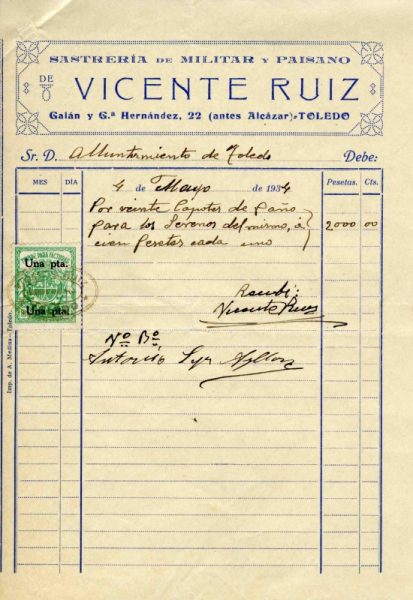 SASTRERÍA DE MILITAR Y PAISANO
DE
VICENTE RUIZ
Galán y G.ª Hernández, 22 (antes Alcázar)-TOLEDO
Sr. D. Alluntamiento de Toledo Debe:
MES DÍA 4 de Mayo de 1934 Pesetas. Cts.
Por veinte Capotes de paño
para los Serenos del mismo, á
cien Pesetas cada uno 2000 00
Una pta.
Una pta.
Recibí:
Vicente Ruiz
Vº Bº
Antonio
Imp. de A. Medina.-Toledo.